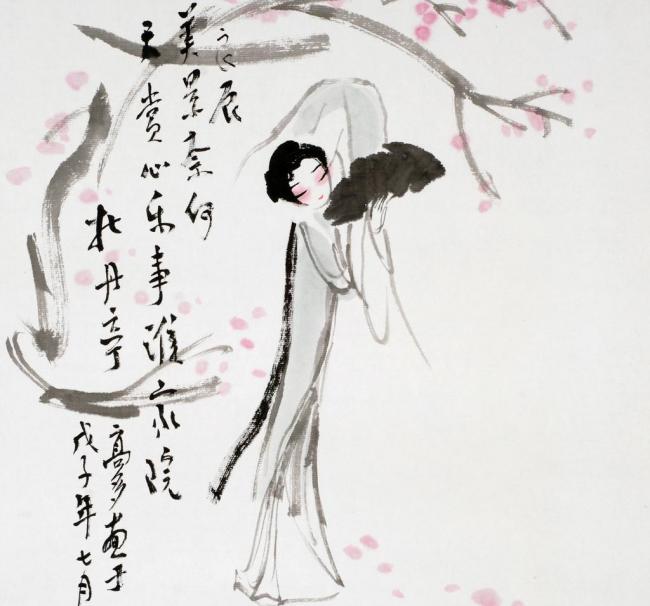 良辰
美景奈何
天赏心乐事谁家院
牡丹亭
高 画于
戊子年七月